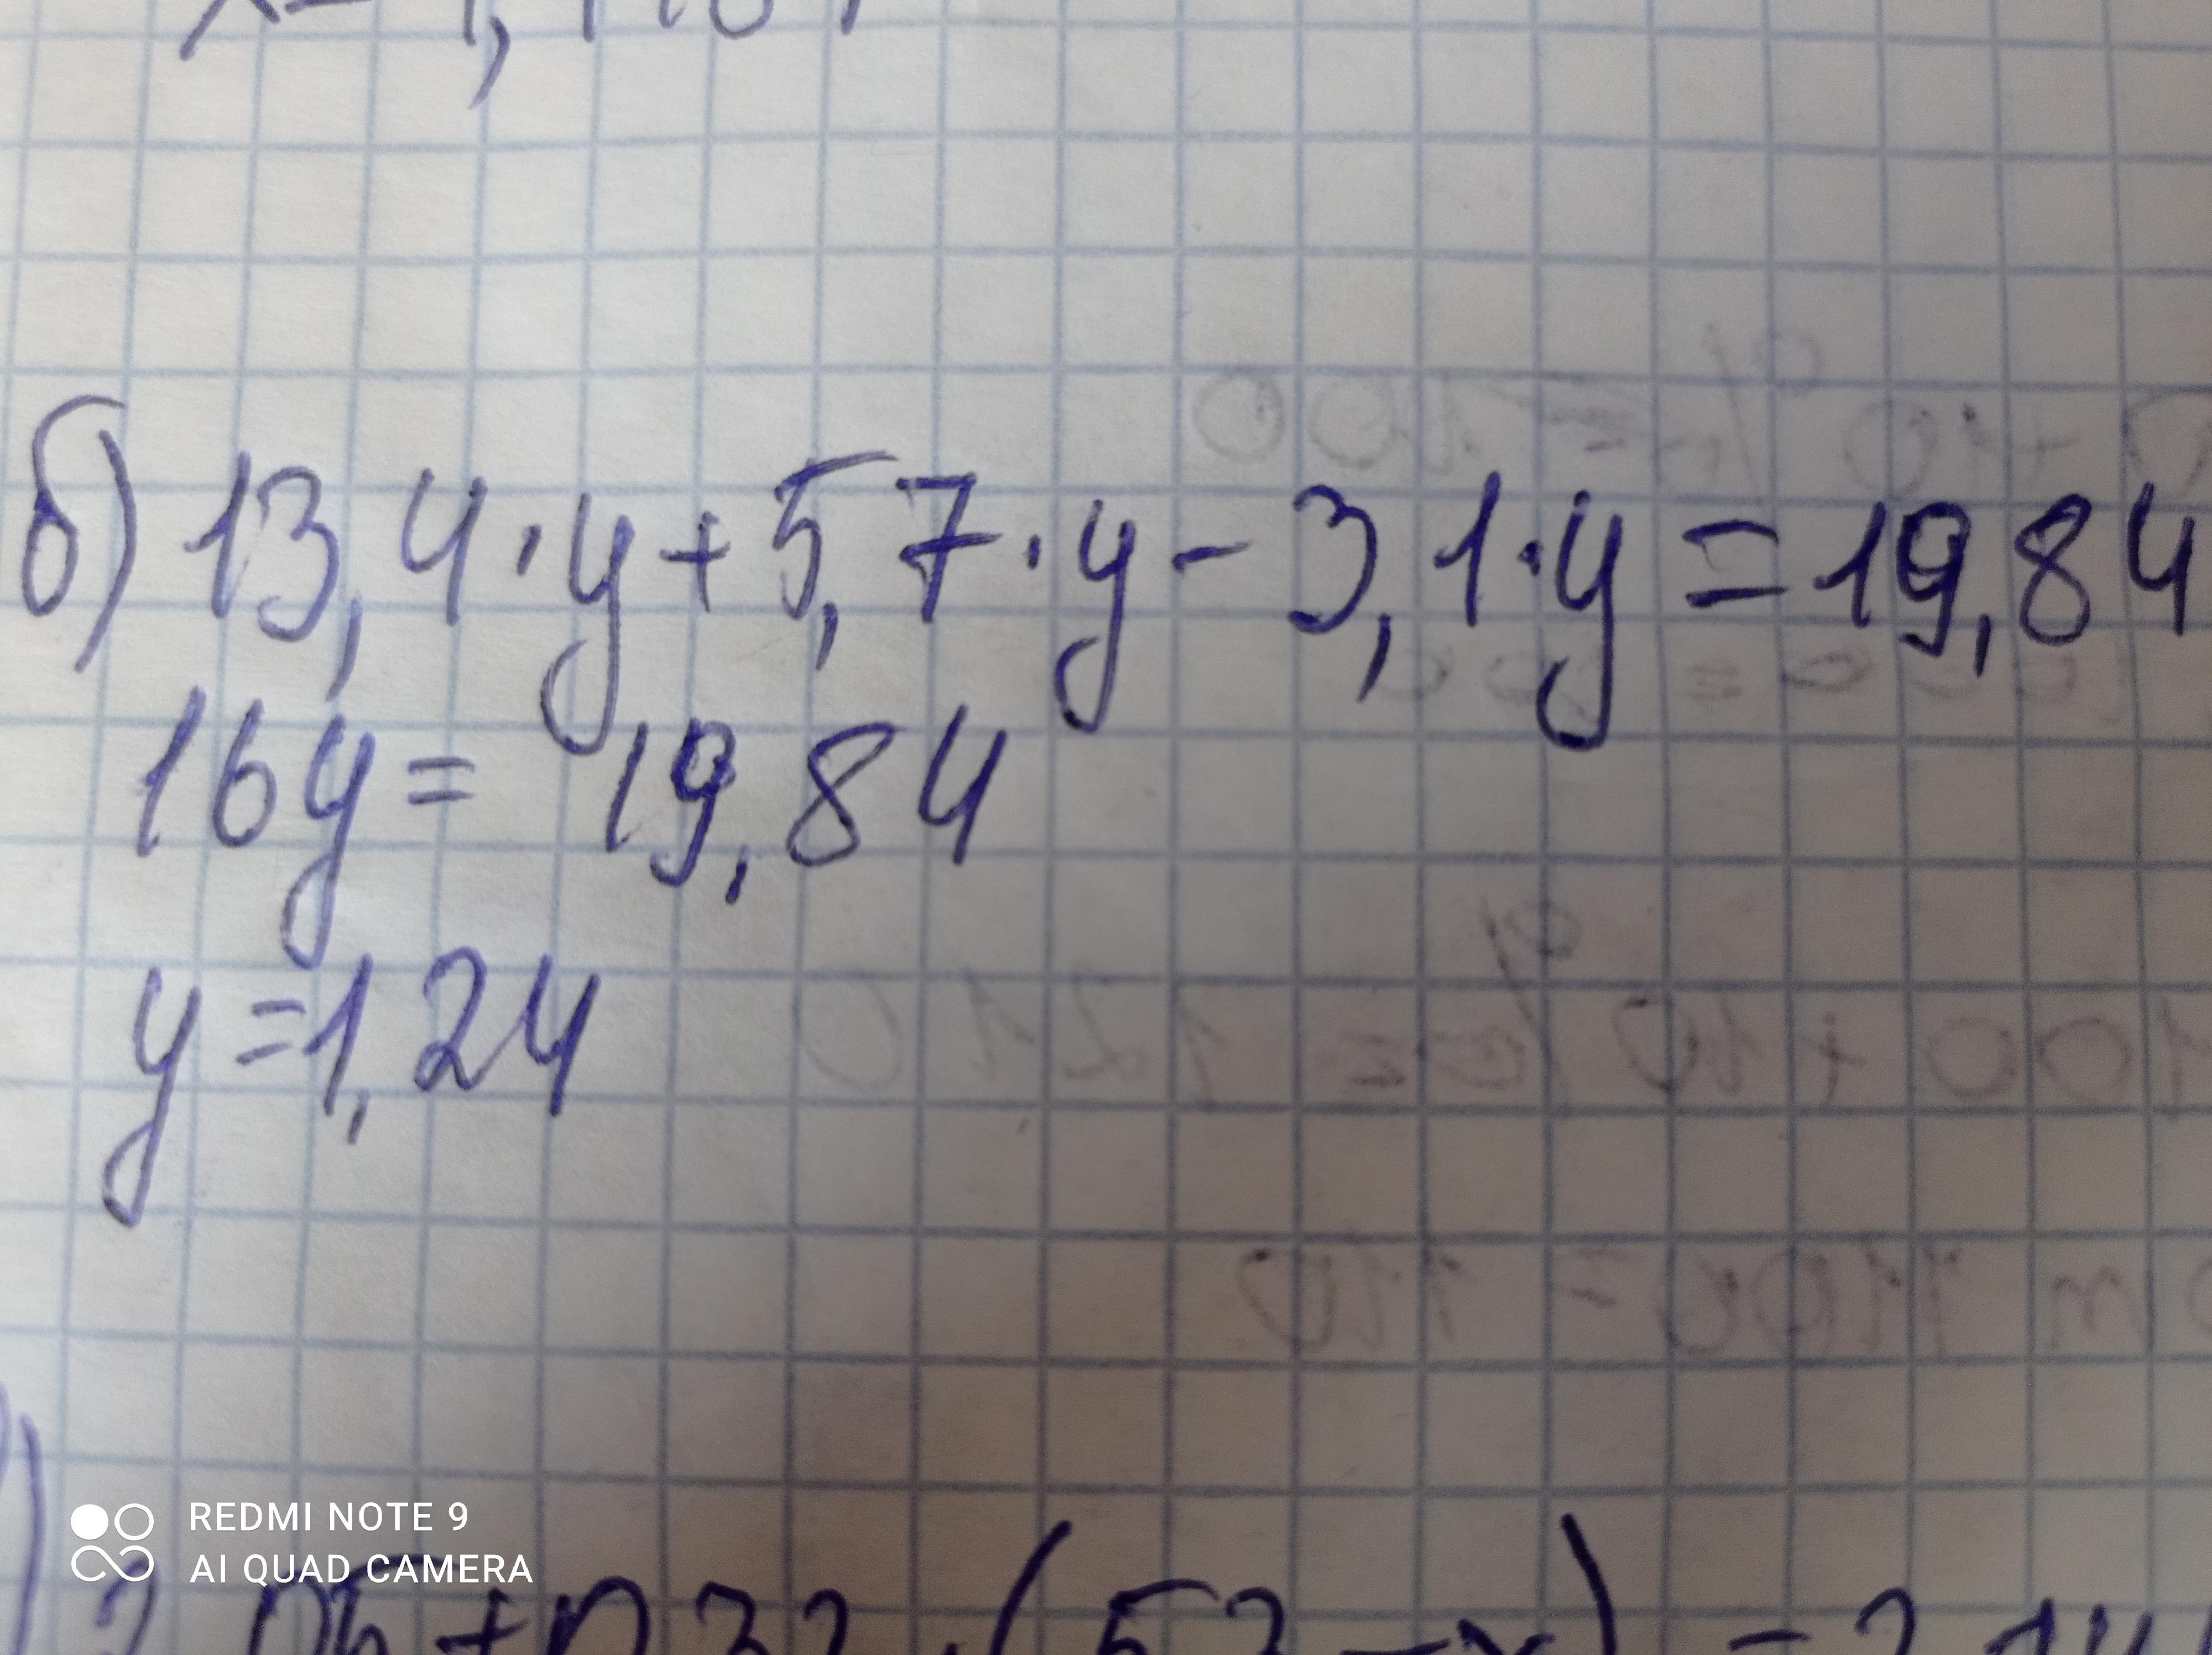 б) 13,4·y+5,7·y-3,1·y=19,84
16y= 19,84
y=1,24
REDMI NOTE 9
AI QUAD CAMERA